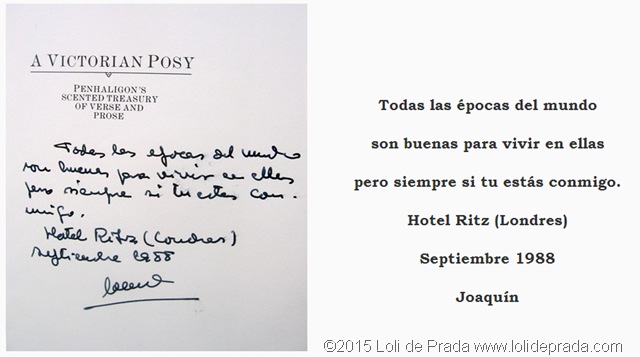 A VICTORIAN POSY
PENHALIGON'S
SCENTED TREASURY
OF VERSE AND
PROSE
Todas las epocas del mundo
son buenas para vivir en ellas
pero siempre si tu estas con-
migo.
Hotel Ritz (Londres)
Septiembre 1988
Todas las épocas del mundo
son buenas para vivir en ellas
pero siempre si tu estás conmigo.
Hotel Ritz (Londres)
Septiembre 1988
Joaquín
©2015 Loli de Prada www.lolideprada.com